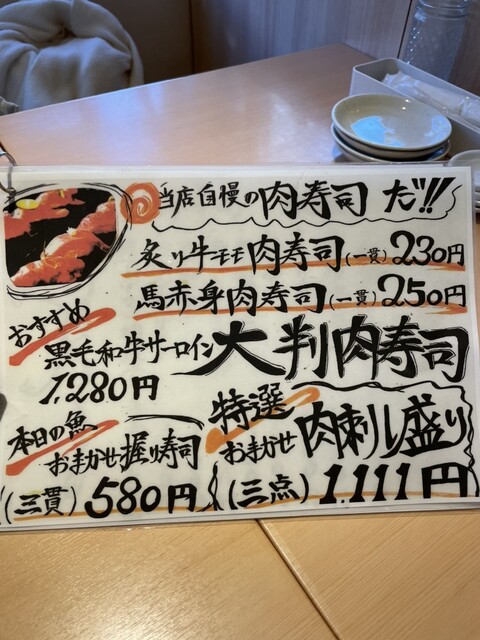 当店自慢の肉寿司だ!!
炙り牛モモ肉寿司(一貫)230円
馬赤身肉寿司(一貫)250円
おすすめ
黒毛和牛サーロイン大判肉寿司
1,280円
本日の魚
おまかせ握り寿司
(三貫)580円
特選
おまかせ肉刺し盛り
(三点)1.111円